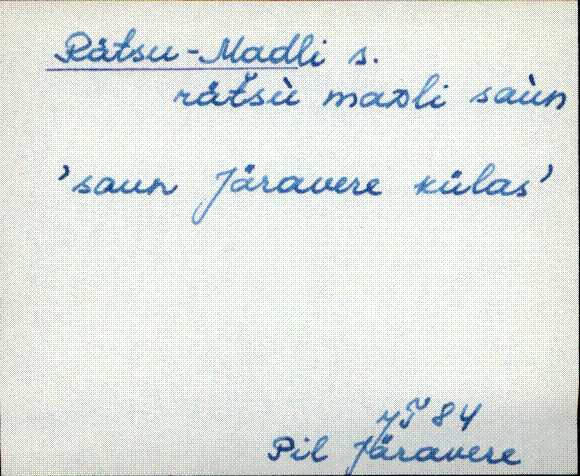 Rätsu-Madli s.
rätsù maᴅli saùn
'saun Järavere külas'
84
Pil Järavere